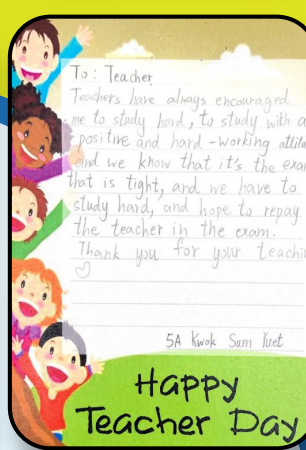 To : Teacher
Teachers have always encouraged
me to study hard, to study with a
positive and hard-working
and we know that it's the
that is tight, and we have to
study hard, and hope to repay
the teacher in the exam.
Thank you for your
♡
5A Kwok Sum Yuet
Happy
Teacher Day